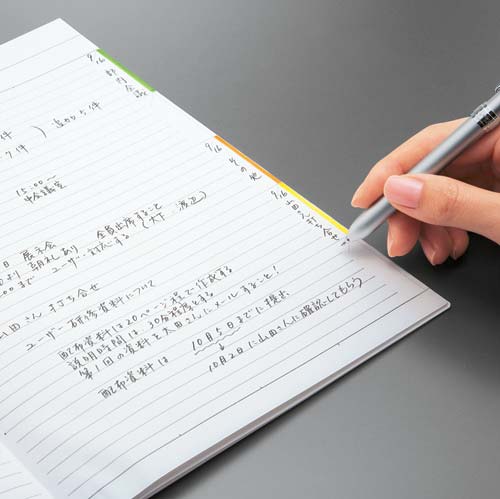 9/6 部内会議
9/6 その他
9/6 山田さん打ち合せ
件
) 追加5件
7件
15:00〜
中会議室
日 展示会 全員出席すること
より 朝礼あり
00まで ユーザー対応する
山田さん 打ち合せ
ユーザー研修資料について
配布資料は20ページ程で作成する
説明時間は30分程度とする
第1回の資料を太田さんにメールすること!
配布資料は 10月5日までに提出
10月2日に山田さんに確認してもらう